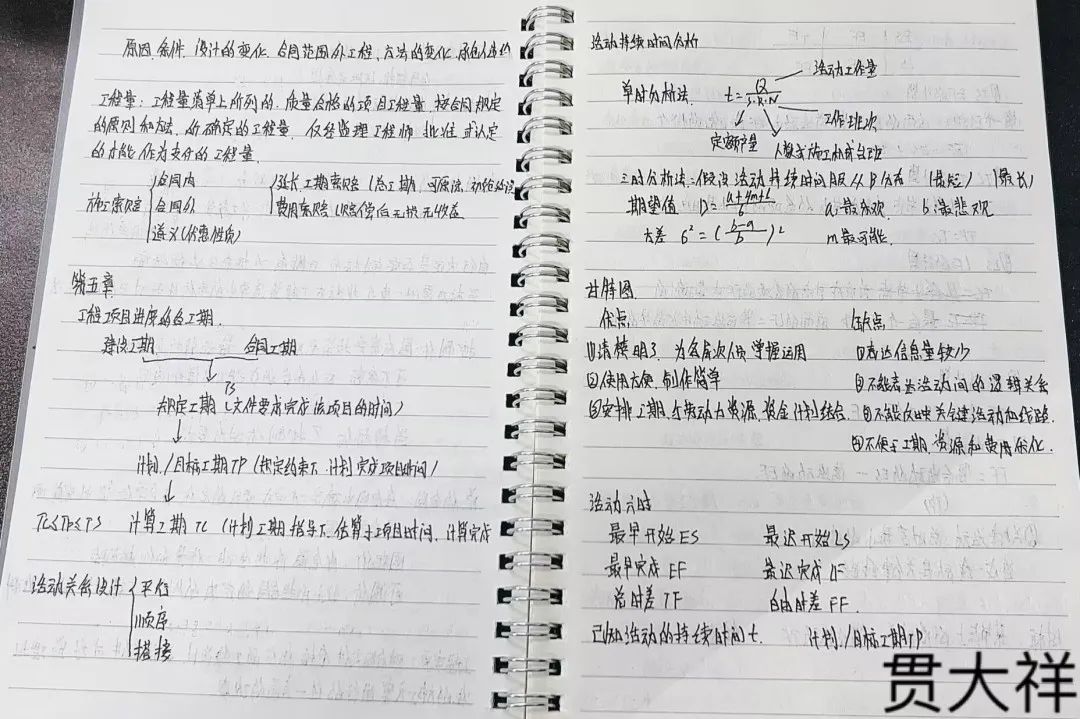 原因、条件、设计的变化、合同范围外工程、方法的变化、承包人违约
工程量：工程量清单上所列的、质量合格的项目工程量，按合同规定
的原则和方法，所确定的工程量，仅经监理工程师批准或认定
的才能作为支付的工程量。
施工索赔
合同内
合同外
道义(优惠性质)
延长工期索赔(总工期、可原谅、
费用索赔(赔偿后无损无收益
第五章
工程项目进度的各工期.
建设工期 合同工期
TS
规定工期(文件要求完成该项目的时间)
计划/目标工期TP(规定约束下、计划完成项目时间)
TC≤TP≤TS 计算工期 TC (计划工期指导下、估算于项目时间、计算完成
活动关系设计
平行
顺序
搭接
活动持续时间分析
单时分析法. t=Q/S·R·N
活动工作量
工作班次
定额产量
人数或施工机械台班
三时分析法:假设活动持续时间服从β分布 (最短) (最长)
期望值 D=a+4m+b/6 a:最乐观. b:最悲观
方差 6²=(b-a/6)² m最可能.
甘特图.
优点 缺点
①清楚明了,为各层次人员掌握运用 ①表达信息量较少
②使用方便,制作简单 ②不能表达活动间的逻辑关系
③安排工期、劳动力资源、资金计划结合 ③不能反映关键活动和线路.
④不便于工期、资源和费用优化.
活动六时
最早开始ES 最迟开始LS
最早完成 EF 最迟完成 LF
总时差 TF 自由时差 FF.
已知活动的持续时间t. 计划/目标工期TP
贯大祥